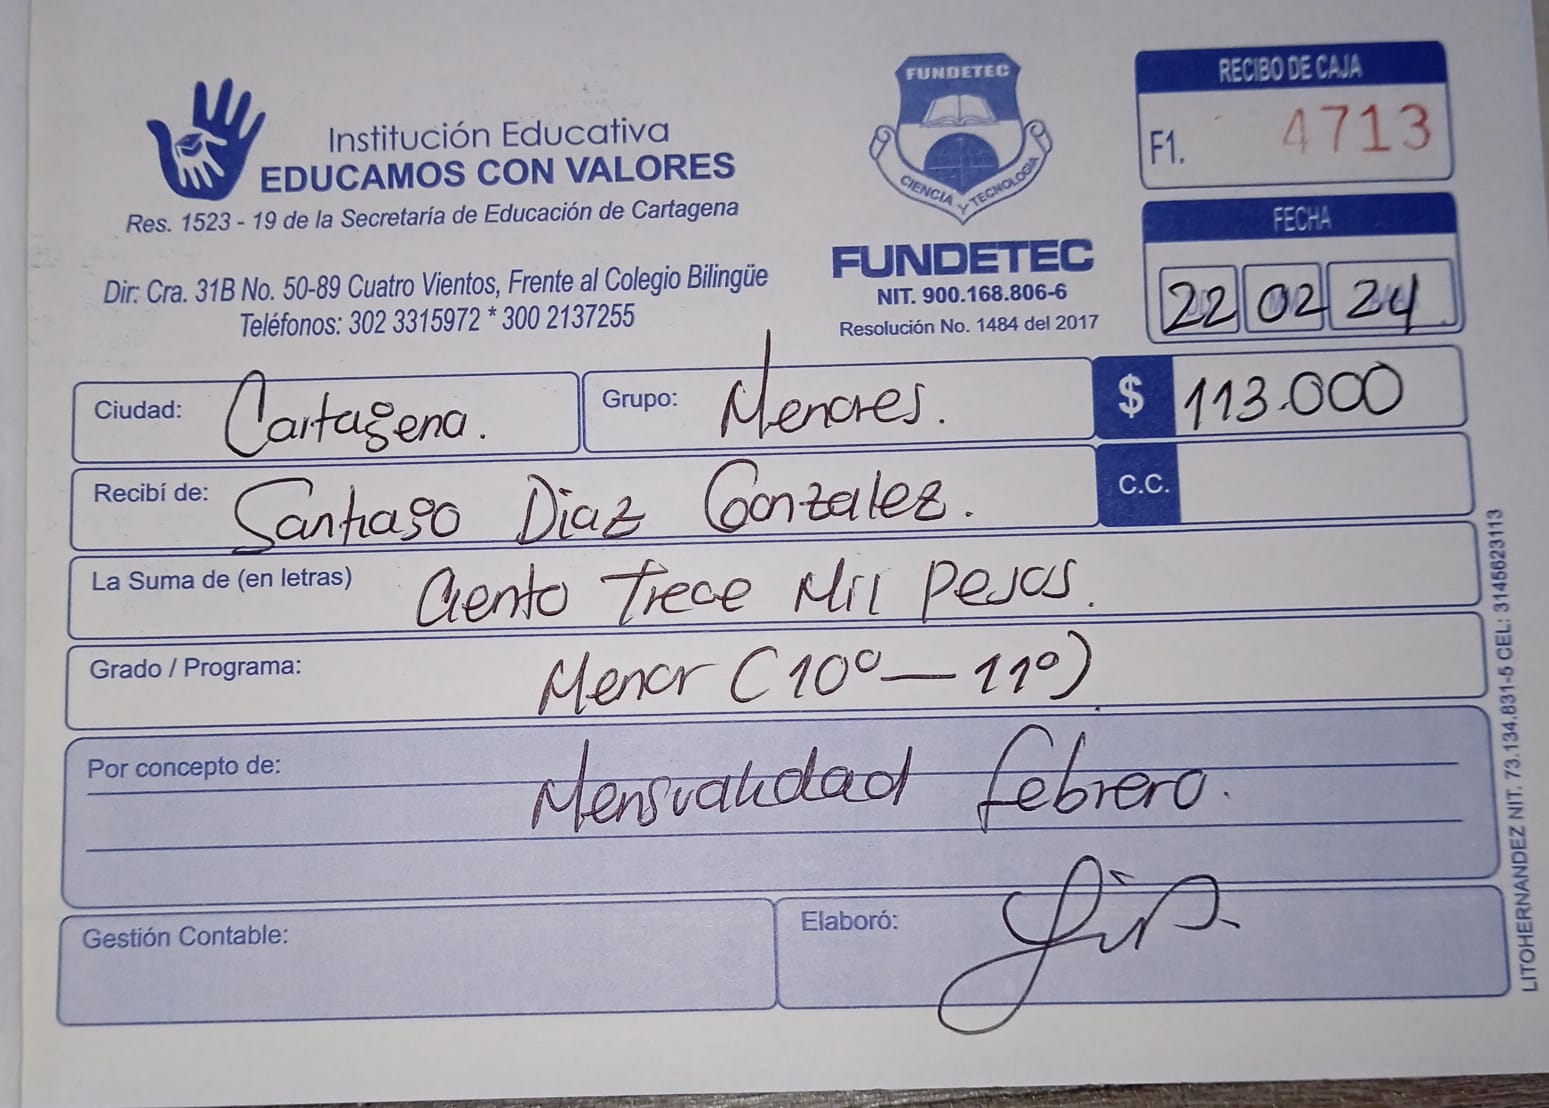 Institución Educativa
EDUCAMOS CON VALORES
Res. 1523 - 19 de la Secretaría de Educación de Cartagena
Dir: Cra. 31B No. 50-89 Cuatro Vientos, Frente al Colegio Bilingüe
Teléfonos: 302 3315972 * 300 2137255
FUNDETEC
CIENCIA Y TECNOLOGIA
FUNDETEC
NIT. 900.168.806-6
Resolución No. 1484 del 2017
RECIBO DE CAJA
F1. 4713
FECHA
22 02 24
Ciudad: Cartagena. Grupo: Menores. $ 113.000
Recibí de: Santiago Diaz Gonzalez. C.C.
La Suma de (en letras) Ciento Trece Mil Pesos.
Grado / Programa: Menor (10º — 11º)
Por concepto de: Mensualidad febrero.
Gestión Contable: Elaboró:
LITOHERNANDEZ NIT. 73.134.831-5 CEL: 3145623113